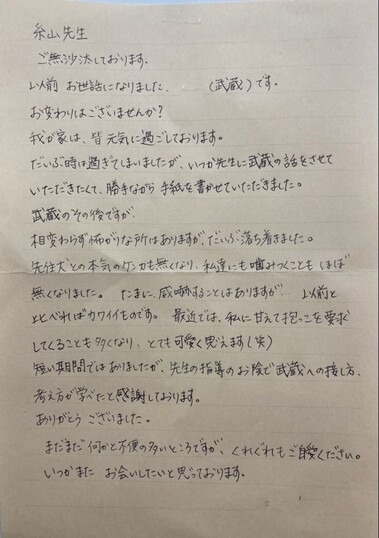 糸山先生
ご無沙汰しております。
以前 お世話になりました、 (武蔵)です。
お変わりはございませんか?
我が家は、皆 元気に過ごしております。
だいぶ時は過ぎてしまいましたが、いつか先生に武蔵の話をさせて
いただきたくて、勝手ながら 手紙を書かせていただきました。
武蔵のその後ですが、
相変わらず怖がりな所はありますが、だいぶ落ち着きました。
先住犬との本気のケンカも無くなり、私達にも噛みつくことも ほぼ
無くなりました。 たまに、威嚇することはありますが、以前と
比べればカワイイものです。 最近では、私に甘えて抱っこを要求
してくることも多くなり、とても可愛く思えます(笑)
短い期間ではありましたが、先生の指導のお陰で武蔵への接し方、
考え方が学べたと感謝しております。
ありがとう ございました。
まだまだ何かと不便の多いところですが、くれぐれもご自愛ください。
いつかまた お会いしたいと思っております。